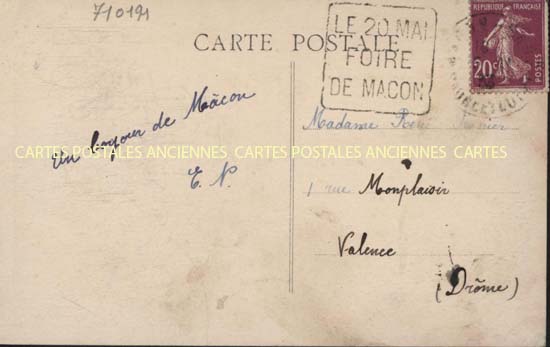 710191
CARTE POSTALE
LE 20 MAI
FOIRE
DE MACON
REPUBLIQUE FRANÇAISE
20c
POSTES
Un bonjour de Mâcon
E. P.
CARTES POSTALES ANCIENNES CARTES POSTALES ANCIENNES CARTES
Madame
1 rue Monplaisir
Valence
(Drôme)